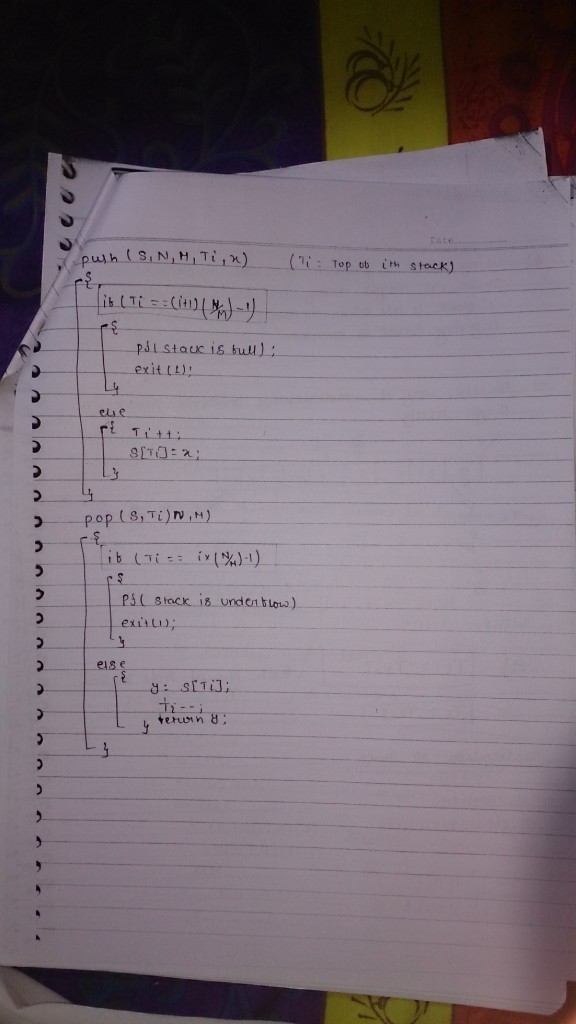 Date
push (S, N, M, Ti, x) (Ti : Top of ith stack)
{
if (Ti == (i+1)(N/M)-1)
{
pf( stack is full);
exit(1);
}
else
{ Ti++;
S[Ti]=x;
}
}
pop (S, Ti) N, M)
{
if (Ti == i×(N/M)-1)
{
Pf( stack is underflow)
exit(1);
}
else
{ y= S[Ti];
Ti--;
} return y;
}